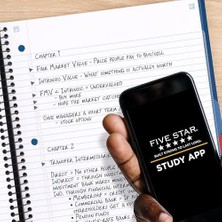 CHAPTER 1
FAIR MARKET VALUE - PRICE PEOPLE PAY TO BUY/SELL
INTRINSIC VALUE - WHAT SOMETHING IS ACTUALLY WORTH
FMV < INTRINSIC = UNDERVALUED
- BUY MORE
- HOPE THE MARKET CATCHES
GIVE MANAGERS A
- STOCK OPTIONS
CHAPTER 2
TRANSFER INTERMEDIARIES
DIRECT - NO OTHER
INDIRECT - THROUGH
INVESTMENT BANK MAKES
THROUGH FINANCIAL
- COMMERCIAL
- CREDIT
- PENSION FUNDS
FIVE STAR.
BUILT STRONG TO LAST LONG
STUDY APP